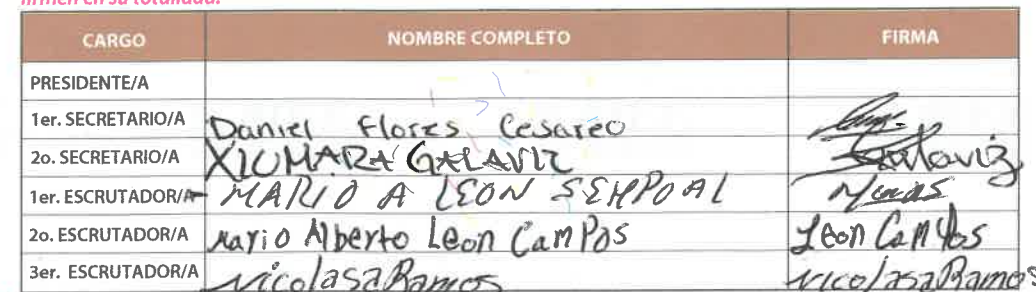 firmen en su totalidad.
CARGO NOMBRE COMPLETO FIRMA
PRESIDENTE/A
1er. SECRETARIO/A Daniel Flores Cesareo
2o. SECRETARIO/A XIOMARA GALAVIZ Galaviz
1er. ESCRUTADOR/A MARIO A LEON SEMPOAL
2o. ESCRUTADOR/A Mario Alberto Leon CamPos Leon CamPos
3er. ESCRUTADOR/A Nicolasa Ramos Nicolasa Ramos